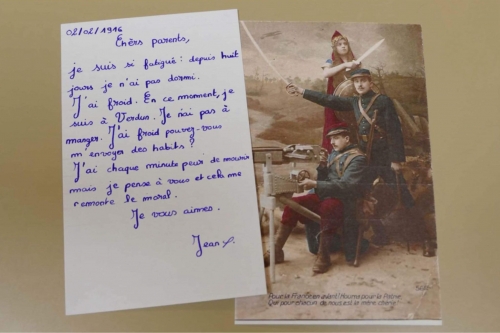 02/02/1916
Chers parents,
je suis si fatigué : depuis huit
jours je n'ai pas dormi.
J'ai froid. En ce moment, je
suis à Verdun. Je n'ai pas à
manger. J'ai froid pouvez-vous
m'envoyer des habits ?
J'ai chaque minute peur de mourir
mais je pense à vous et cela me
remonte le moral.
Je vous aimes.
Jean